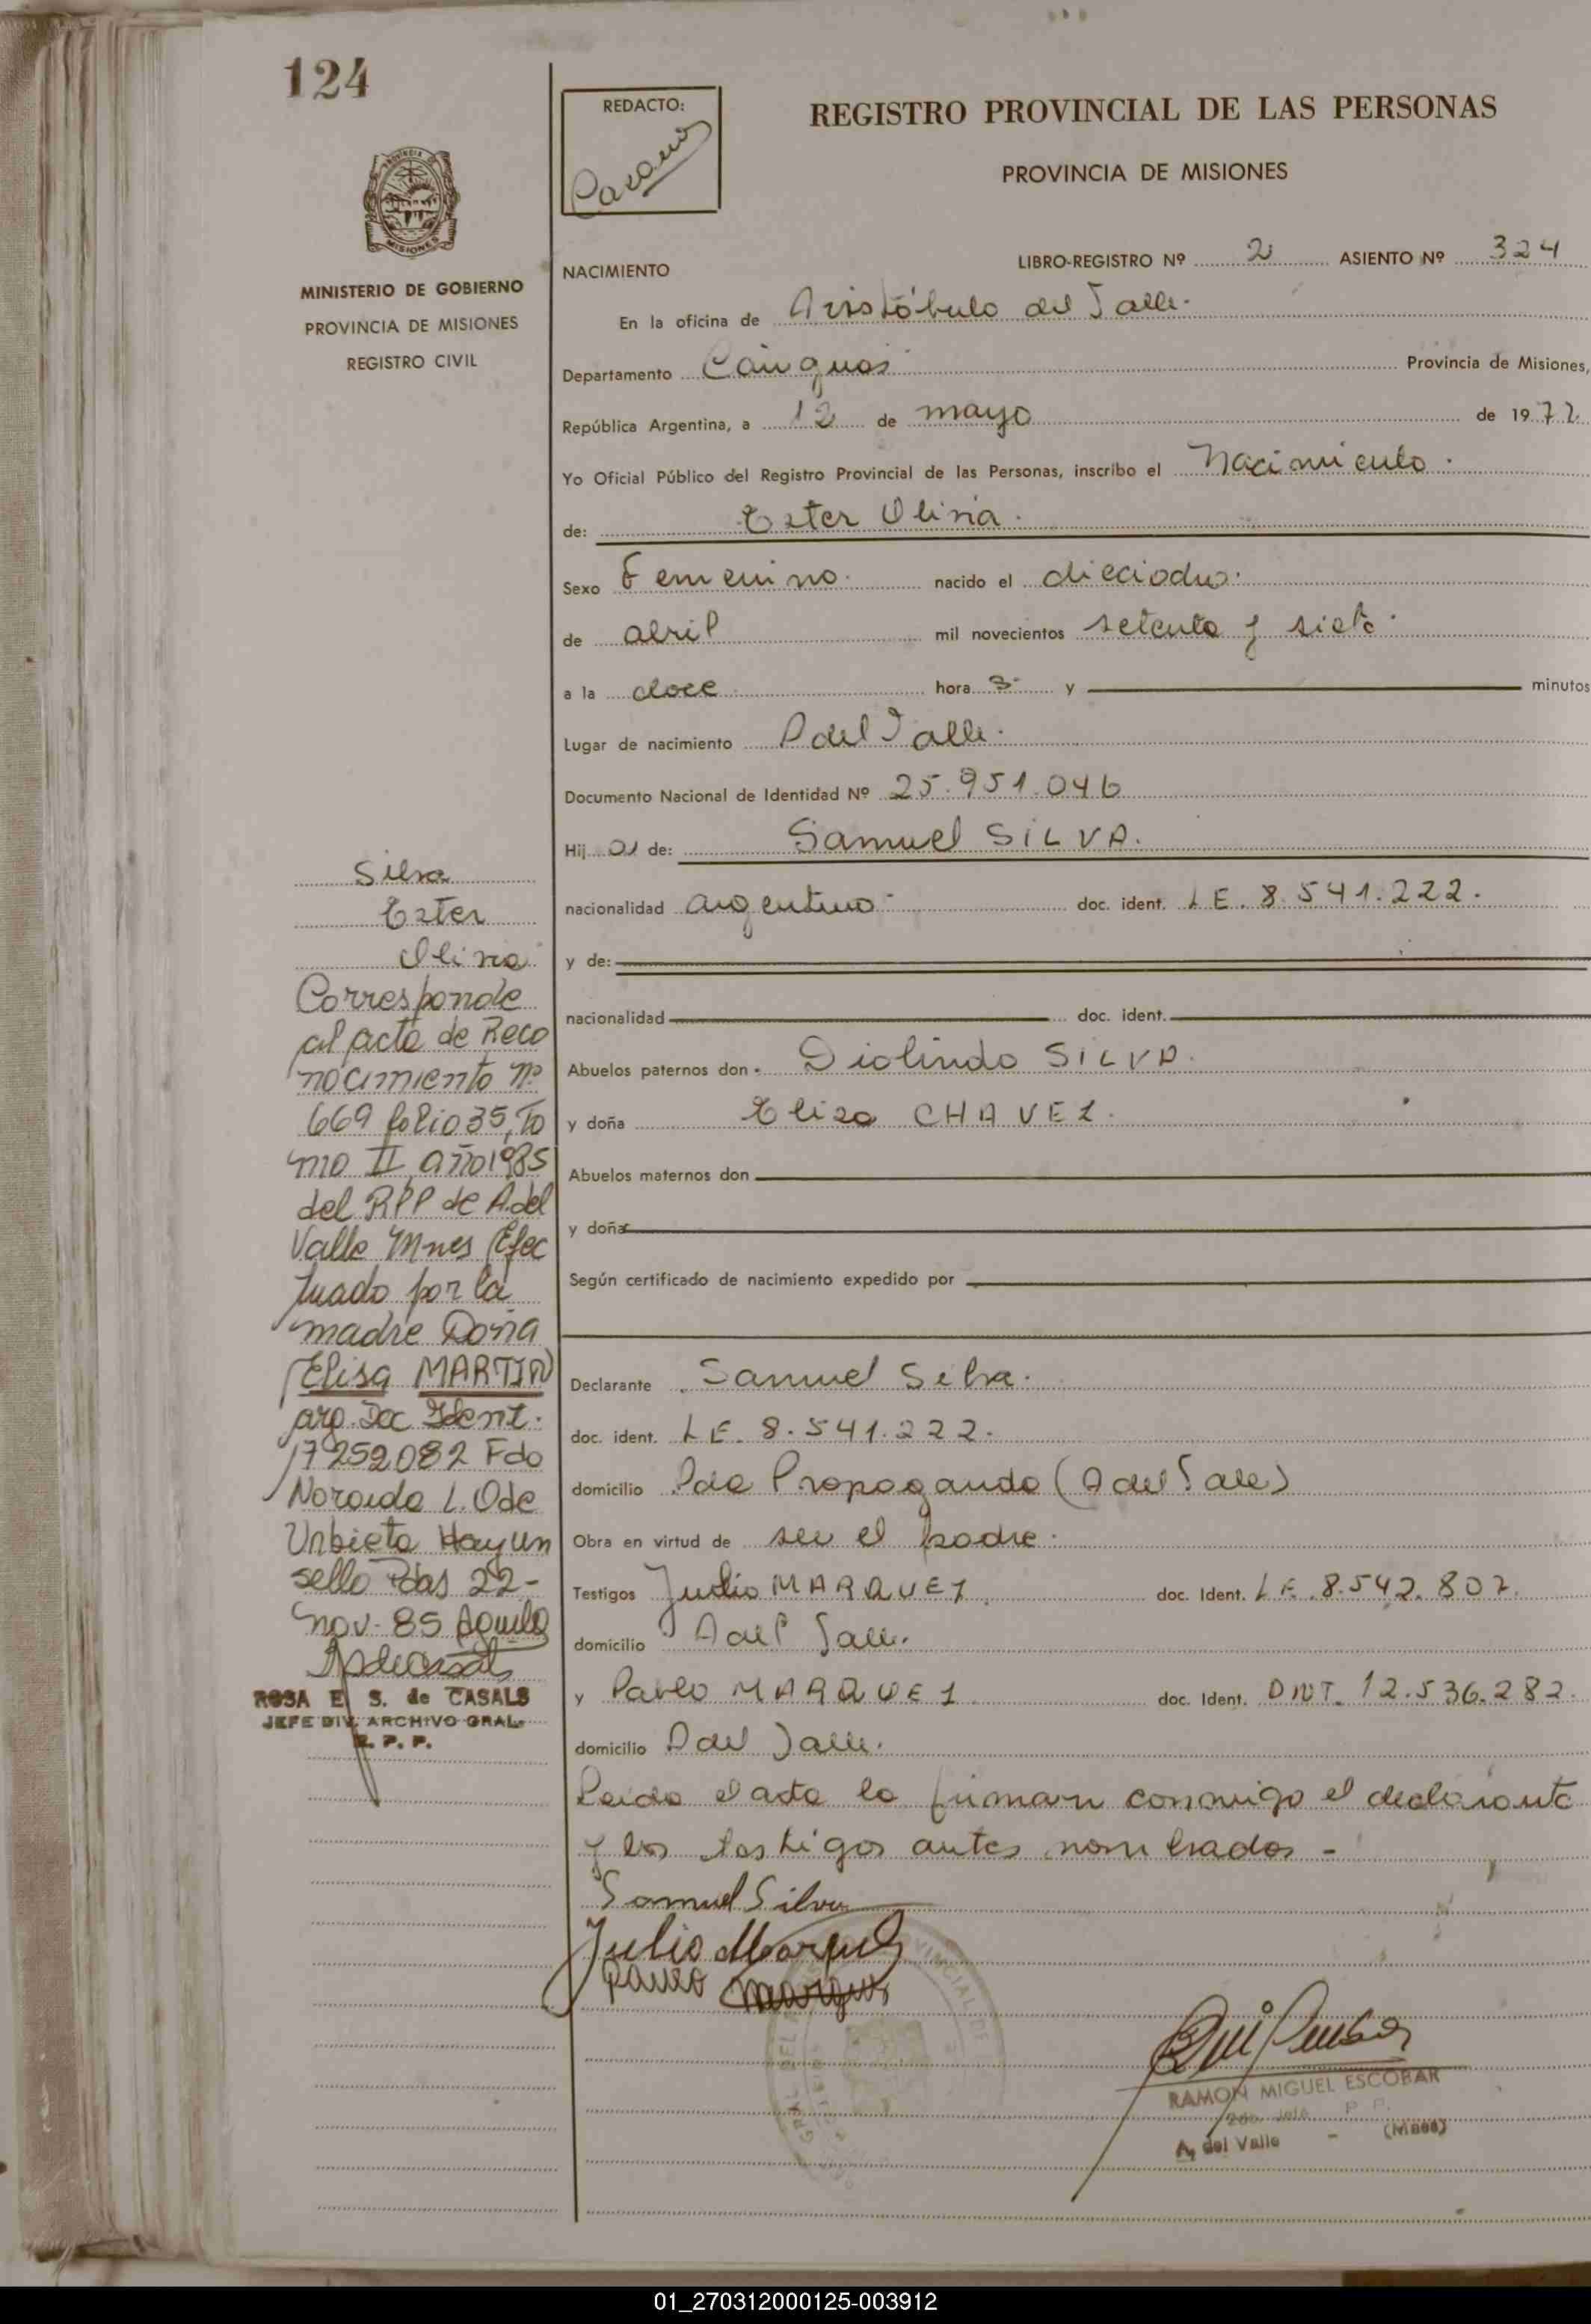 124
REDACTO:
REGISTRO PROVINCIAL DE LAS PERSONAS
PROVINCIA DE MISIONES
PROVINCIA DE
MISIONES
MINISTERIO DE GOBIERNO
PROVINCIA DE MISIONES
REGISTRO CIVIL
NACIMIENTO
LIBRO-REGISTRO Nº 2 ASIENTO Nº 324
En la oficina de Aristóbulo del Valle.
Departamento Cainguas Provincia de Misiones,
República Argentina, a 12 de mayo de 1977
Yo Oficial Público del Registro Provincial de las Personas, inscribo el Nacimiento.
de: Ester Olivia.
Sexo Femenino. nacido el dieciocho.
de abril mil novecientos setenta y siete.
a la doce hora s y minutos
Lugar de nacimiento A del Valle.
Documento Nacional de Identidad Nº 25.951.046
Hij a de: Samuel SILVA.
nacionalidad argentino doc. ident. LE. 8.541.222.
y de:
nacionalidad doc. ident.
Abuelos paternos don Diolindo SILVA.
y doña Eliza CHAVEZ.
Abuelos maternos don
y doña
Según certificado de nacimiento expedido por
Declarante Samuel Silva.
doc. ident. LE. 8.541.222.
domicilio Pda Propaganda (A del Valle)
Obra en virtud de ser el padre.
Testigos Julio MARQUEZ doc. Ident. LE. 8.542.807.
domicilio A del Valle.
y Pablo MARQUEZ doc. Ident. DNI. 12.536.282.
domicilio A del Valle.
Leida el acta la firman conmigo el declarante
y los testigos antes nombrados -
Samuel Silva
Julio Marquez
Pablo Marques
RAMON MIGUEL ESCOBAR
2do. Jefe P. P.
A. del Valle - (Mnes)
Silva
Ester
Olivia
Corresponde
al acta de Reco
nocimiento Nº
669 folio 35, To
mo II, año 1985
del RPP de A. del
Valle Mnes Efec
tuado por la
madre Doña
Elisa MARTIN
arg. Doc Ident.
17252082 Fdo
L. Ode
Urbieta Hay un
sello Pdas 22-
nov. 85
ROSA E. S. de CASALS
JEFE DIV. ARCHIVO GRAL.
R. P. P.
01_270312000125-003912